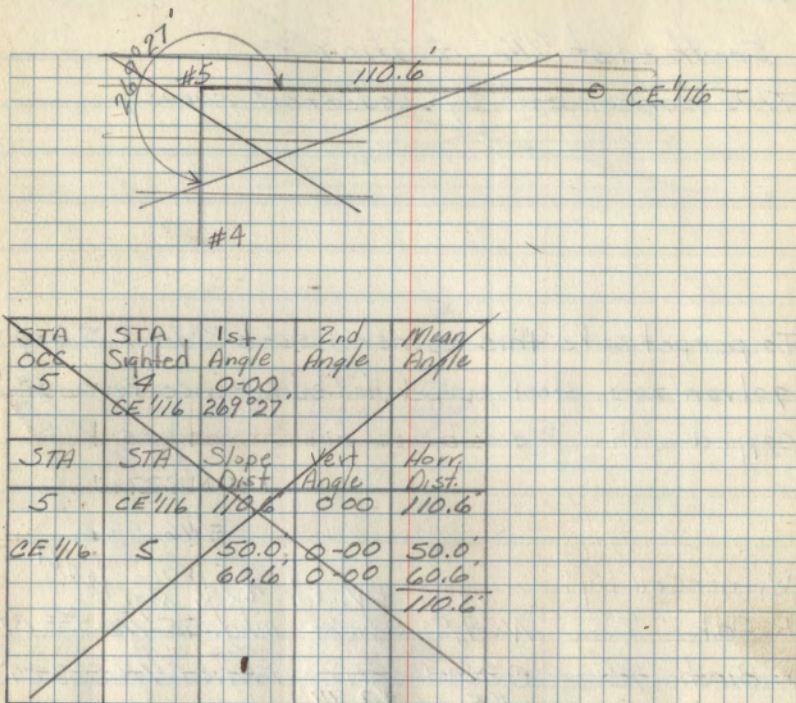 269°27'
#5 110.6' CE 1/16
#4
STA OCC. STA Sighted 1st Angle 2nd Angle Mean Angle
5 4 0-00
CE 1/16 269°27'
STA STA Slope Dist Vert Angle Horr. Dist.
5 CE 1/16 110.6' 0 00 110.6'
CE 1/16 5 50.0' 0-00 50.0'
60.6' 0-00 60.6'
110.6'